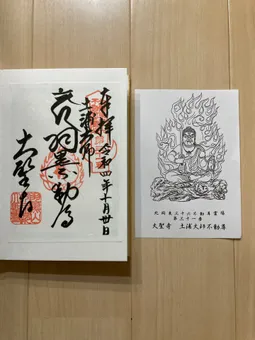 奉拝 令和四年十月
土浦大師
不動尊
大聖寺
北関東三十六不動尊霊場
第三十一番
大聖寺 土浦大師不動尊